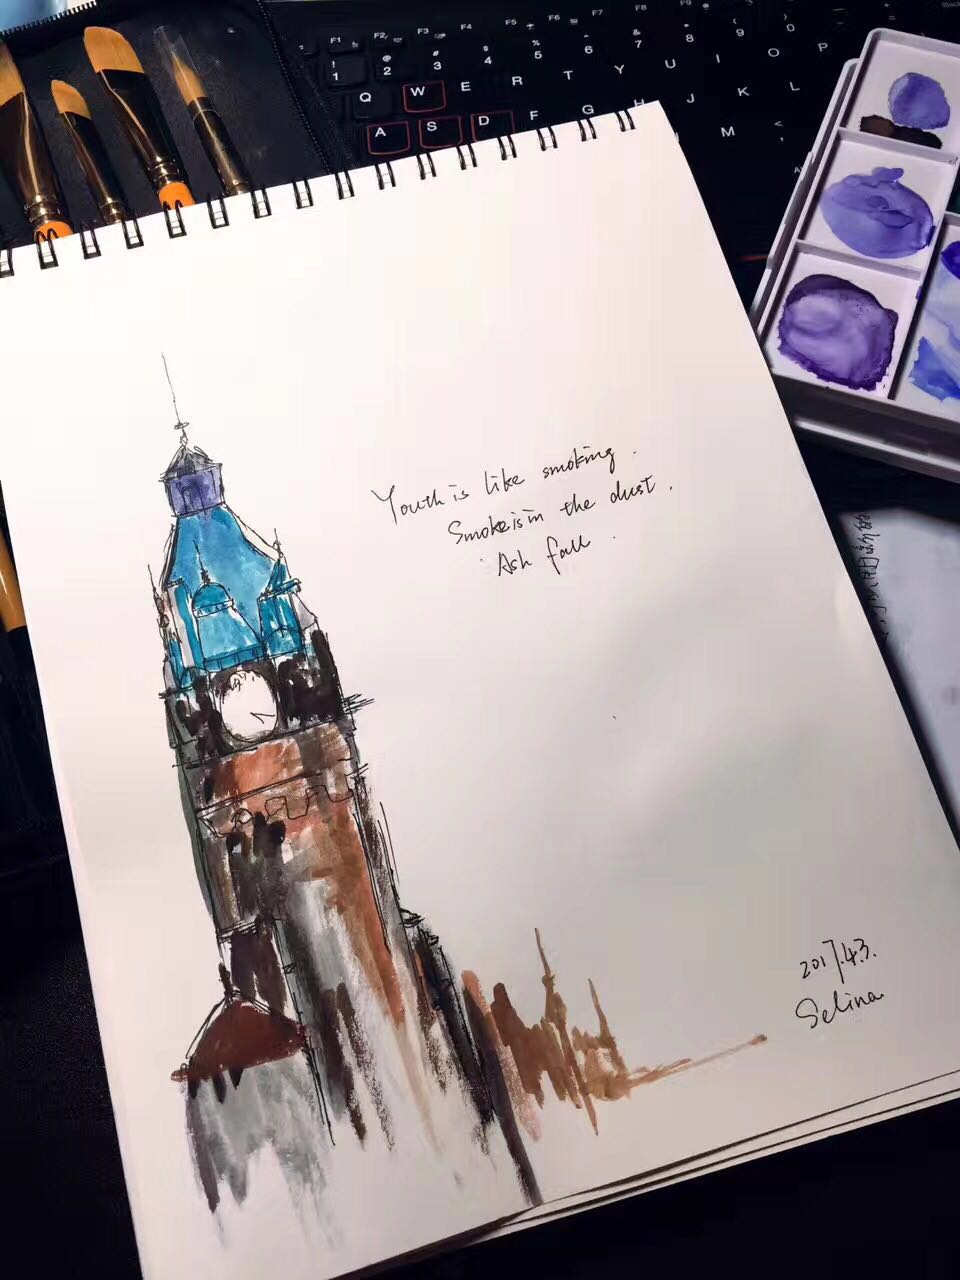 F1 F2 F3 F4 F5 F6 F7 F8 F9
! @ # $ % ^ & * ( )
1 2 3 4 5 6 7 8 9 0
Q W E R T Y U I O P
A S D F G H J K L
M <
Youth is like smoking.
Smoke is in the dust.
Ash fall.
2017.4.3.
Selina